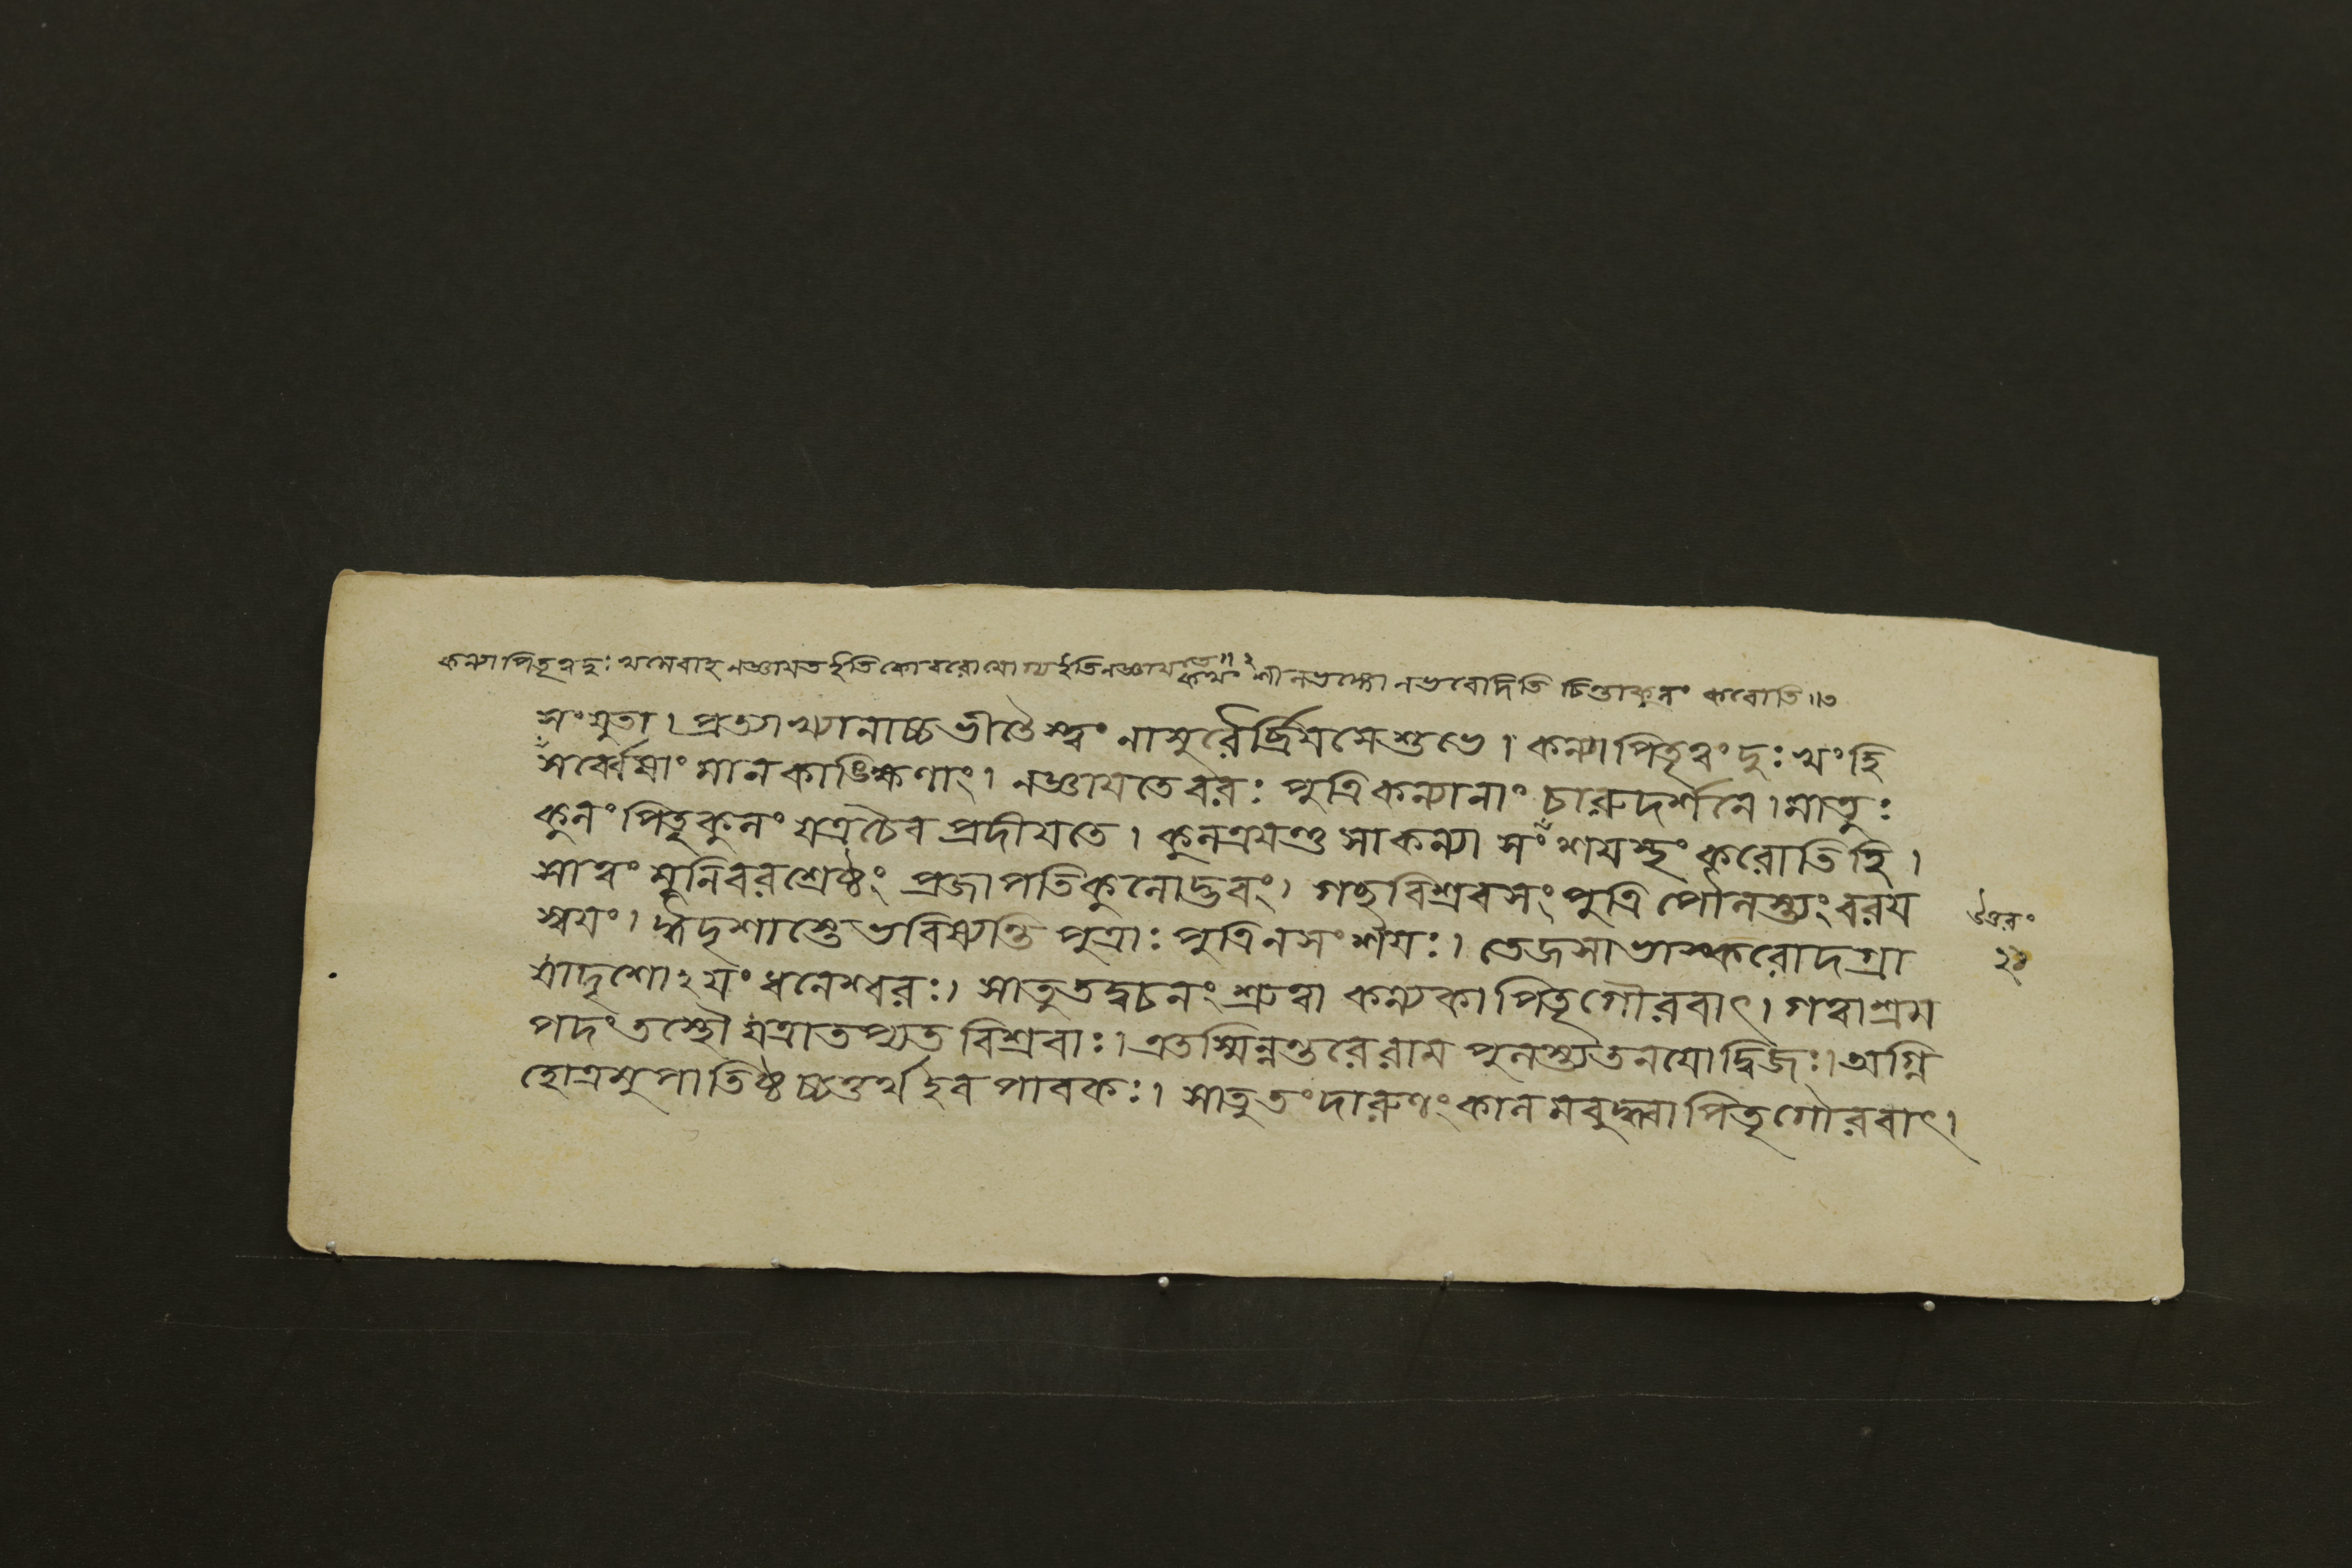 কন্যাপিতৃত্বদুঃখমেবাহ নজ্ঞায়ত ইতি কোবরোযোগ্য ইতি নজ্ঞায়তে॥২
কথং শীলভঙ্গো নভবেদিতি চিন্তাকুলং করোতি॥৩
সংযুতা। প্রত্যাখ্যানাচ্চভীতৈস্ত্বং নাসুরৈর্ব্রিযসেশুভে। কন্যাপিতৃত্বংদুঃখংহি
সর্ব্বেষাং মানকাঙ্ক্ষিণাং। নজ্ঞাযতেবরঃ পুত্রিকন্যানাং চারুদর্শনে। মাতুঃ
কুলংপিতৃকুলং যত্রচৈব প্রদীযতে। কুলত্রযন্তু সাকন্যা সংশযস্থং করোতিহি।
সাত্বং মুনিবরশ্রেষ্ঠং প্রজাপতিকুলোদ্ভবং। গচ্ছবিশ্রবসংপুত্রি পৌলস্ত্যংবরয
স্বযং। ঈদৃশাস্তেভবিষ্যন্তি পুত্রাঃ পুত্রিনসংশযঃ। তেজসাভাস্করোদগ্রা
যাদৃশোঽযংধনেশ্বরঃ। সাতুতদ্বচনংশ্রুত্বা কন্যকাপিতৃগৌরবাৎ। গত্বাশ্রম
পদংতস্থৌ যত্রাতপ্যত বিশ্রবাঃ। এতস্মিন্নন্তরেরাম পুলস্ত্যতনযোদ্বিজঃ। অগ্নি
হোত্রমুপাতিষ্ঠচ্চতুর্থইব পাবকঃ। সাতুতংদারুণংকালমবুদ্ধ্বাপিতৃগৌরবাৎ।
উত্তরং
২১